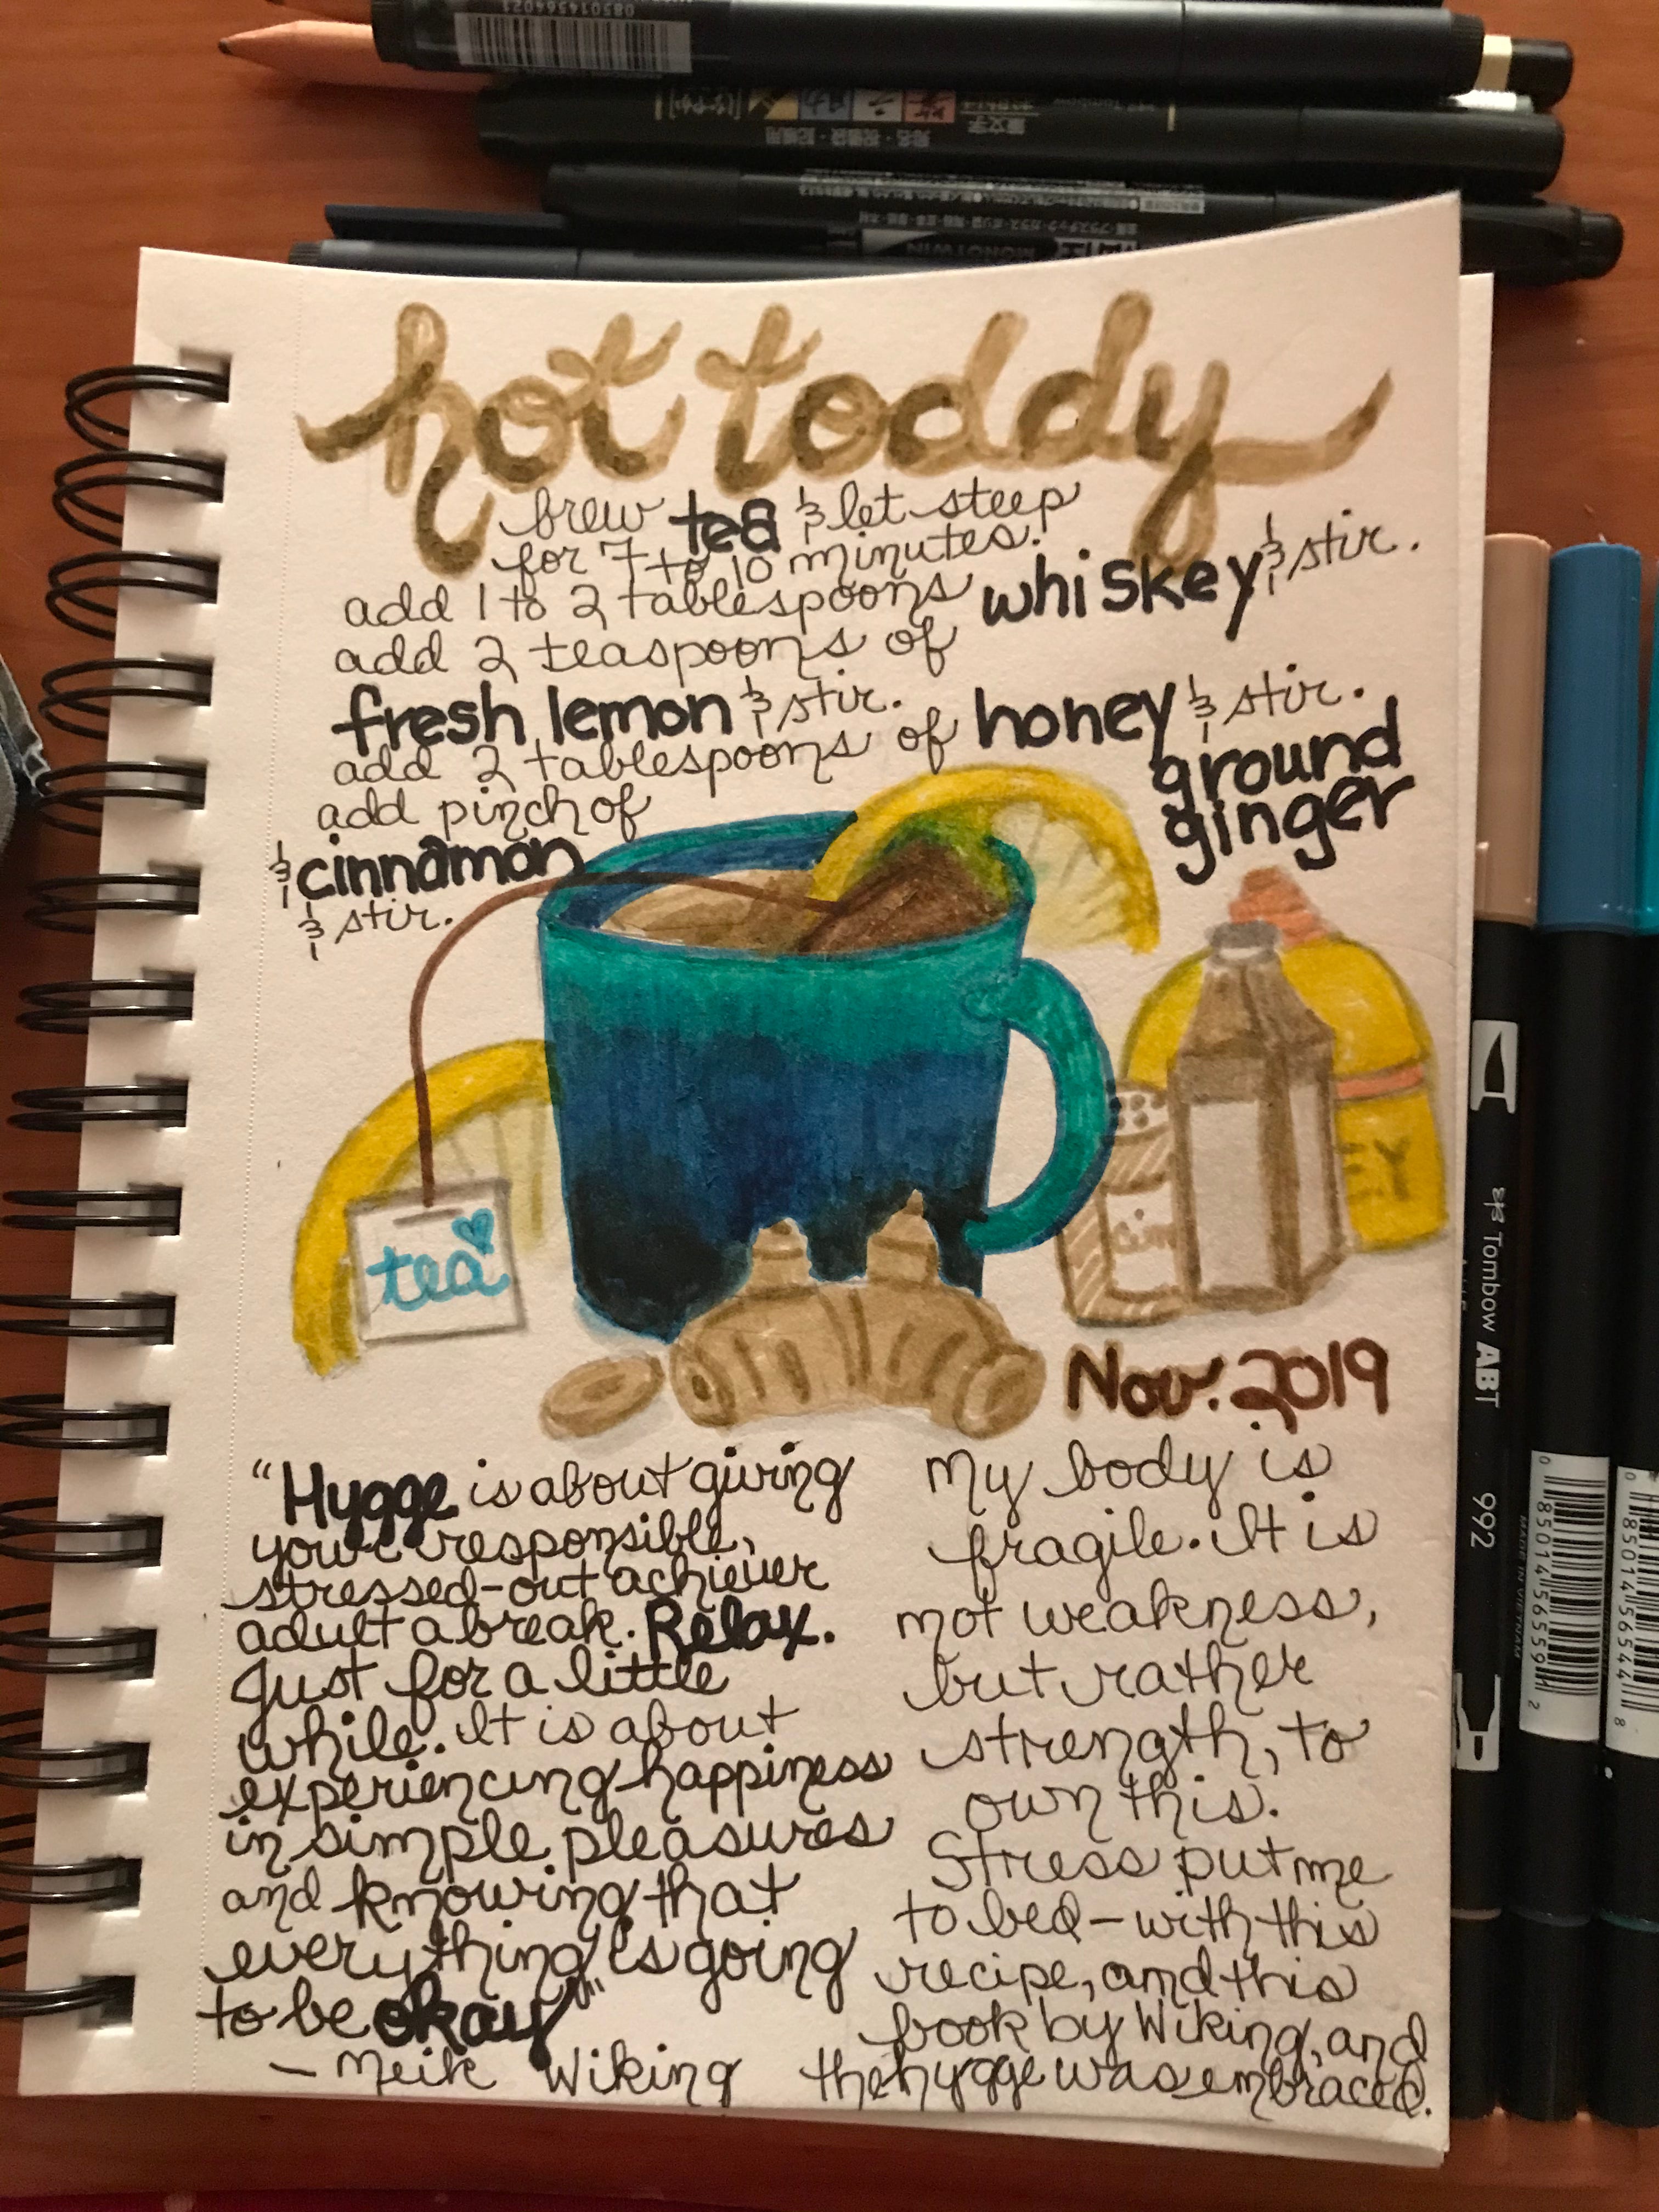 085014564021
Tombow
筆文字
MONOTWIN
hot toddy
brew tea & let steep
for 7 to 10 minutes.
add 1 to 2 tablespoons whiskey & stir.
add 2 teaspoons of
fresh lemon & stir.
add 2 tablespoons of honey & stir.
add pinch of ground
ginger
& cinnamon
& stir.
tea
cinn
EY
Nov. 2019
"Hygge is about giving
your responsible,
stressed-out achiever
adult a break. Relax.
Just for a little
while. It is about
experiencing happiness
in simple pleasures
and knowing that
everything is going
to be okay"
- Meik Wiking
My body is
fragile. It is
not weakness,
but rather
strength, to
own this.
Stress put me
to bed - with this
recipe, and this
book by Wiking, and
the hygge was embraced.
Tombow ABT 992
MADE IN VIETNAM
0 85014 56559 2
0 85014 56544 8